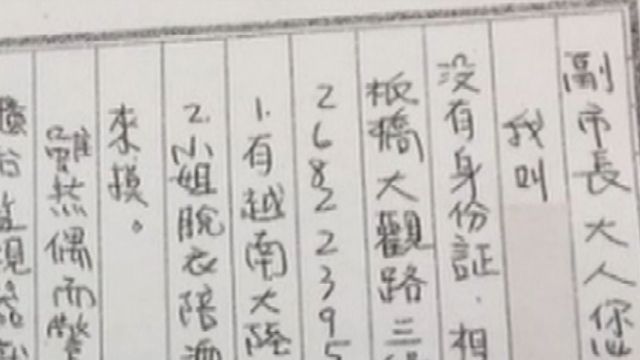 副市長大人您
我叫
沒有身份証．相
板橋大觀路三
26822395
1.有越南大陸
2.小姐脫衣陪酒
來摸。
雖然偶而警
監視器